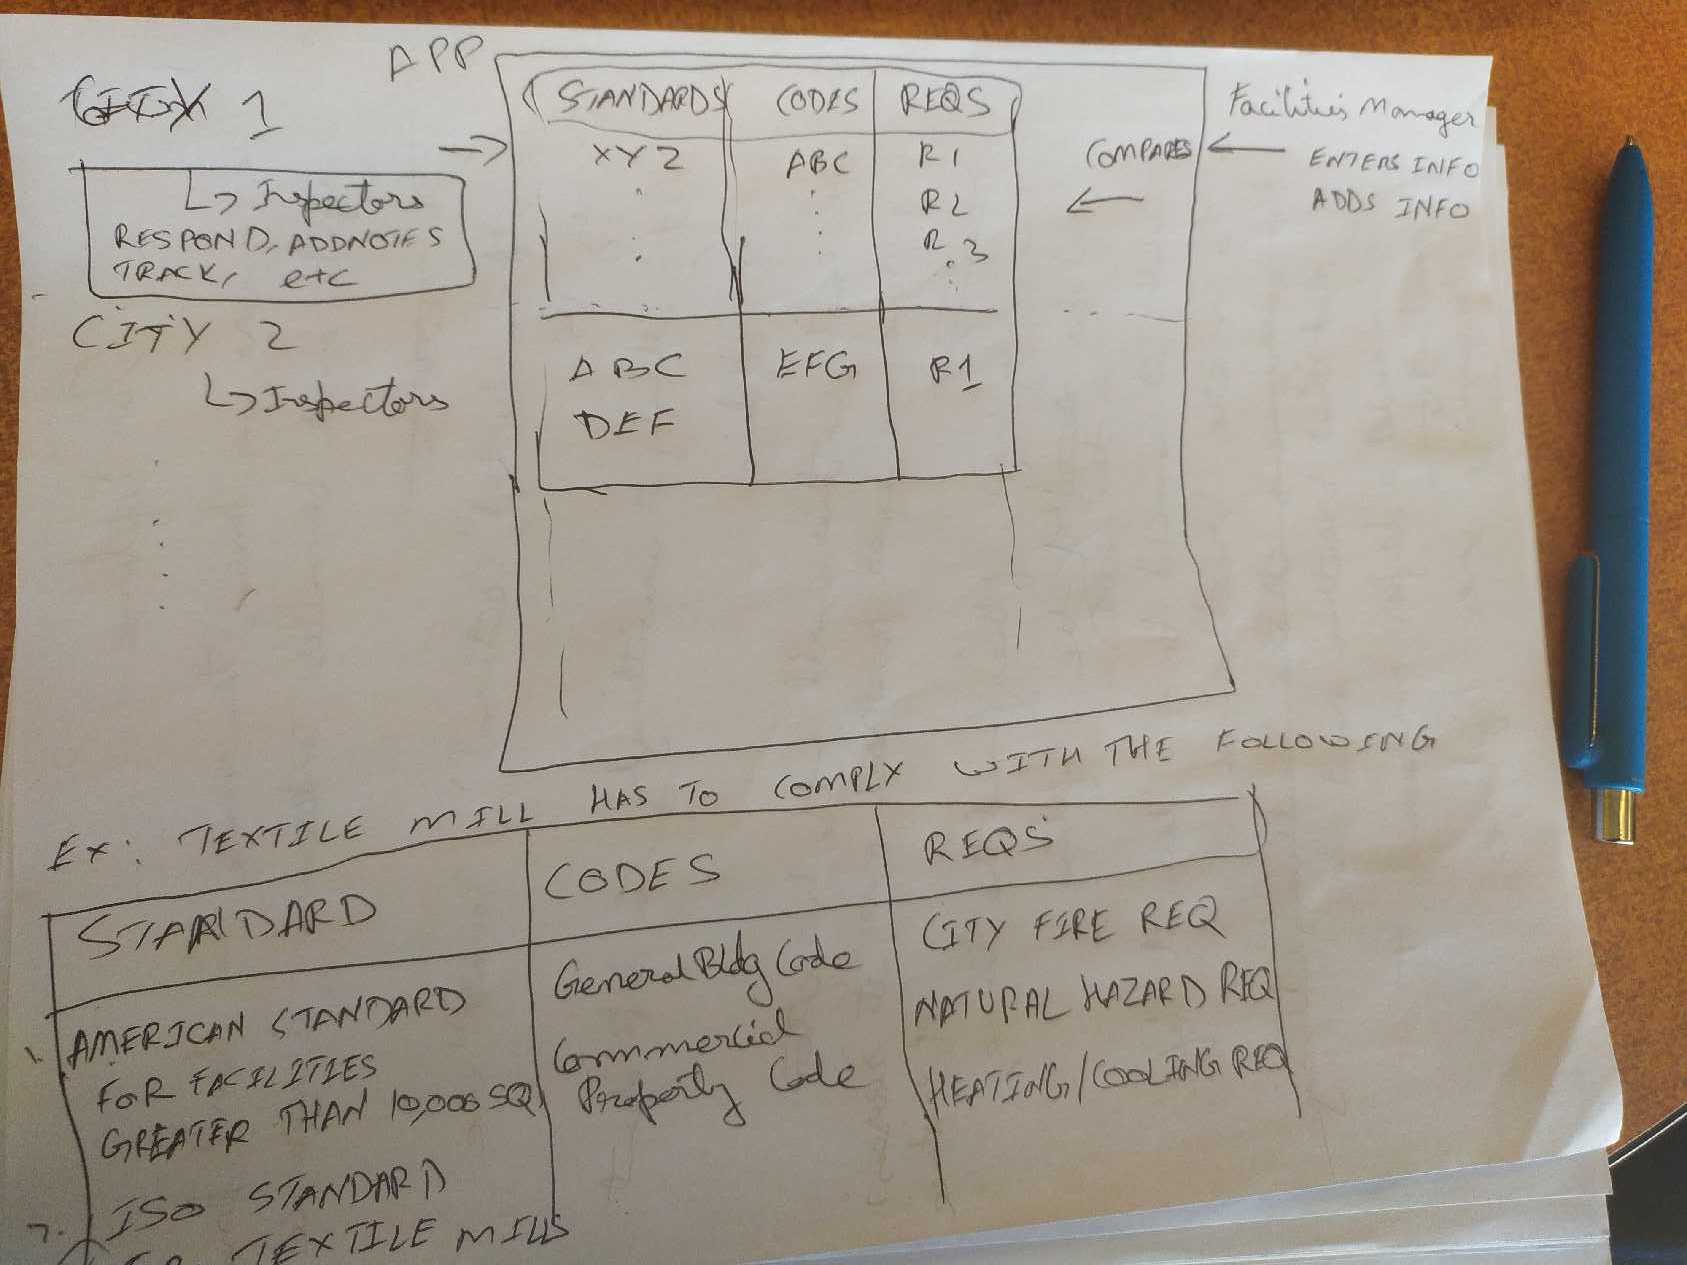 APP
CITY 1
↳ Inspectors
RESPOND, ADDNOTES
TRACK, etc
CITY 2
↳ Inspectors
STANDARDS CODES REQS
XYZ ABC R1
R2
R 3
ABC EFG R1
DEF
COMPARES
Facilities Manager
ENTERS INFO
ADDS INFO
EX: TEXTILE MILL HAS TO COMPLY WITH THE FOLLOWING
STANDARD CODES REQS
1. AMERICAN STANDARD
FOR FACILITIES
GREATER THAN 10,000 SQ
ISO STANDARD
TEXTILE MILLS
General Bldg Code
Commercial
Property Code
CITY FIRE REQ
NATURAL HAZARD REQ
HEATING/COOLING REQ